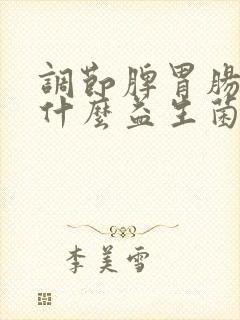 調節脾胃腸
什麼益生菌
李美雪